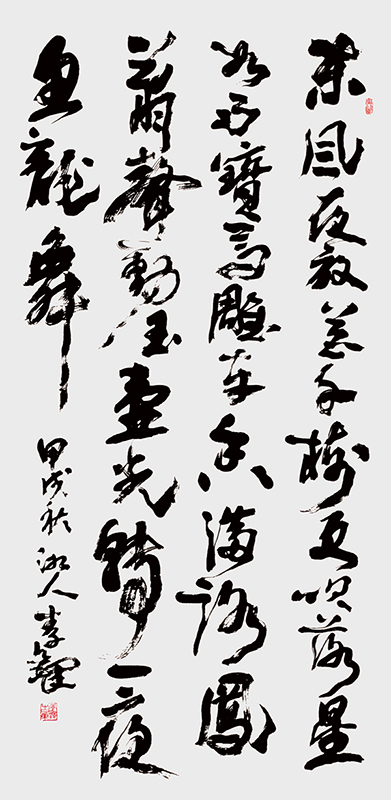 東風夜放花千樹更吹落星
如雨寶馬雕車香滿路鳳
簫聲動玉壺光轉一夜
魚龍舞
甲戌秋湘人李鐸